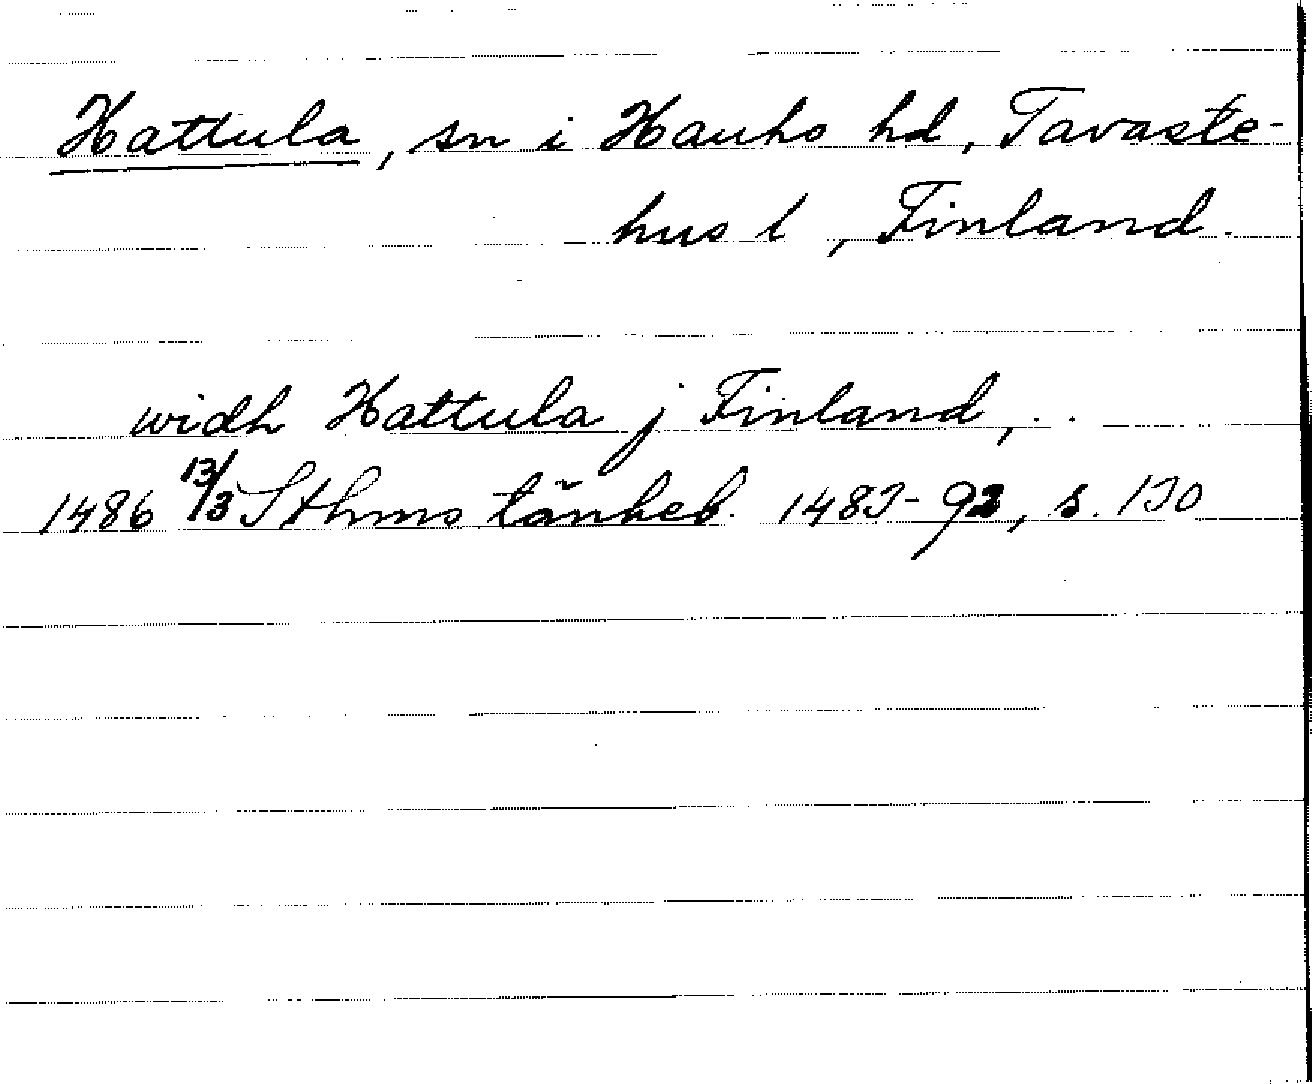 Hattula, sn i Hauho hd, Tavaste-
hus l, Finland.
widh Hattula j Finland, . .
1486 13/3 Sthms tänkeb. 1483-92, s. 130